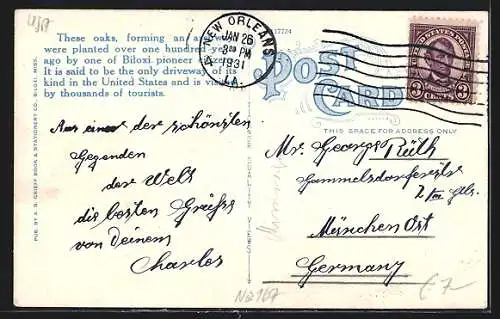 USA
These oaks, forming an
were planted over one hundred
ago by one of Biloxi pioneer citizens.
It is said to be the only driveway of its
kind in the United States and is visited
by thousands of tourists.
NEW ORLEANS
JAN 26
3 PM
1931
LA.
17724
POST CARD
3 CENTS 3
THIS SPACE FOR ADDRESS ONLY
PUB. BY A. S. GRIEFF BOOK & STATIONERY CO. BILOXI, MISS.
QUALITY VIEWS
Aus einer der schönsten
Gegenden
der Welt
die besten Grüsse
von Deinem
Charles
Mr. Georges Rüth
2
München Ost
Germany
No 167
€ 7